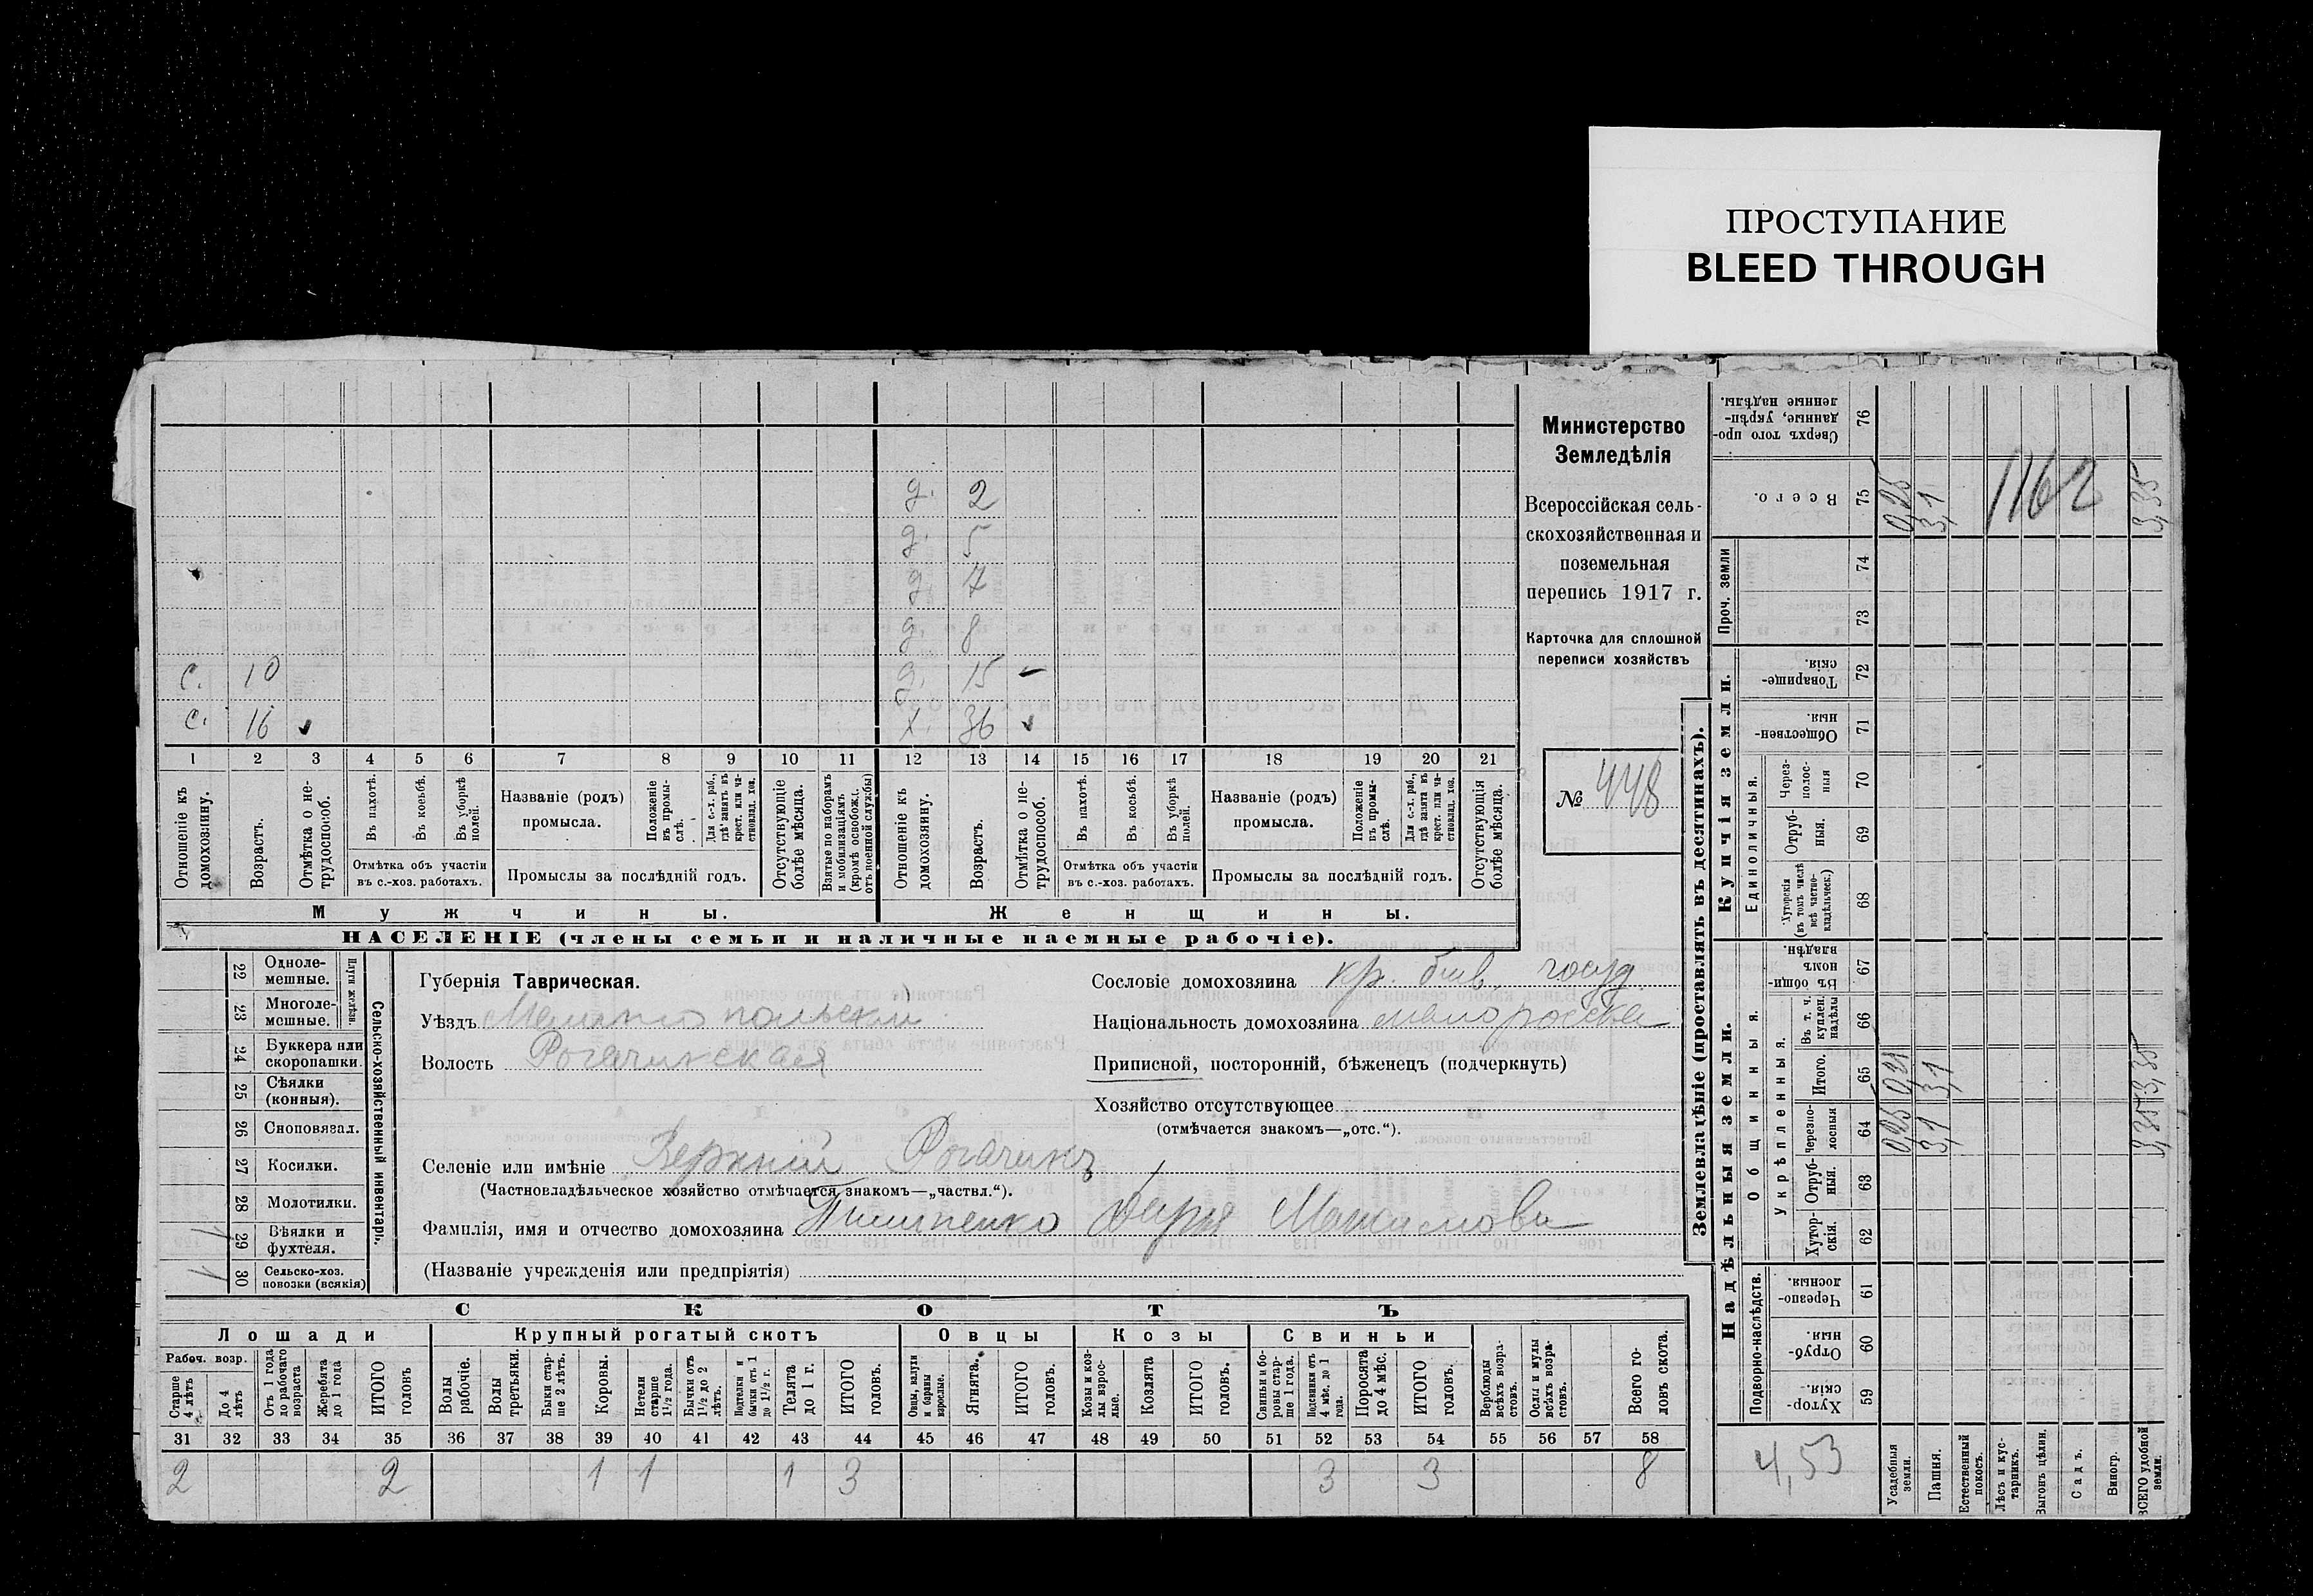 ПРОСТУПАНИЕ
BLEED THROUGH
Министерство
Земледѣлія
Всероссійская сель-
скохозяйственная и
поземельная
перепись 1917 г.
Карточка для сплошной
переписи хозяйствъ
№ 448
д. 2
д. 5
д. 7
д. 8
с. 10 д. 15
с. 16 х. 36
1 2 3 4 5 6 7 8 9 10 11 12 13 14 15 16 17 18 19 20 21
Отношеніе къ домохозяину.
Возрастъ.
Отмѣтка о не-трудоспособ.
Въ пахотѣ.
Въ косьбѣ.
Въ уборкѣ полей.
Отмѣтка объ участіи
въ с.-хоз. работахъ.
Названіе (родъ)
промысла.
Положеніе въ промы-слѣ.
Для с.-х. раб., гдѣ занятъ въ крест. или ча-ствовлад. хоз.
Промыслы за послѣдній годъ.
Отсутствующіе болѣе мѣсяца.
Взятые по наборамъ и мобилизаціямъ (кромѣ освобожд. отъ военной службы)
Отношеніе къ домохозяину.
Возрастъ.
Отмѣтка о не-трудоспособ.
Въ пахотѣ.
Въ косьбѣ.
Въ уборкѣ полей.
Отмѣтка объ участіи
въ с.-хоз. работахъ.
Названіе (родъ)
промысла.
Положеніе въ промы-слѣ.
Для с.-х. раб., гдѣ занята въ крест. или ча-ствовлад. хоз.
Промыслы за послѣдній годъ.
Отсутствующія болѣе мѣсяца.
Мужчины. Женщины.
НАСЕЛЕНІЕ (члены семьи и наличные наемные рабочіе).
Сельско-хозяйственный инвентарь.
Плуги желѣзн.
22 Одноле-мешные.
23 Многоле-мешные.
24 Буккера или скоропашки.
25 Сѣялки (конныя).
26 Сноповязал.
27 Косилки.
28 Молотилки.
29 Вѣялки и фухтеля.
30 Сельско-хоз. повозки (всякія)
Губернія Таврическая.
Уѣздъ Мелитопольскій
Волость Рогачикская
Сословіе домохозяина кр. быв. госуд.
Національность домохозяина малоросска
Приписной, посторонній, бѣженецъ (подчеркнуть)
Хозяйство отсутствующее
(отмѣчается знакомъ—„отс.“).
Селеніе или имѣніе Верхній Рогачикъ
(Частновладѣльческое хозяйство отмѣчается знакомъ—„частвл.“).
Фамилія, имя и отчество домохозяина Дарья Максимова
(Названіе учрежденія или предпріятія)
СКОТЪ
Лошади Крупный рогатый скотъ Овцы Козы Свиньи
Рабоч. возр.
Старше 4 лѣтъ
До 4 лѣтъ
Отъ 1 года до рабочаго возраста
Жеребята до 1 года
ИТОГО головъ
Волы рабочіе.
Волы третьяки.
Быки стар-ше 2 лѣтъ.
Коровы.
Нетели старше 1½ года.
Бычки отъ 1½ до 2 лѣтъ.
Подтелки и бычки отъ 1 до 1½ г.
Телята до 1 г.
ИТОГО головъ.
Овцы, валухи и бараны взрослые.
Ягнята.
ИТОГО головъ.
Козы и коз-лы взрос-лые.
Козлята
ИТОГО головъ.
Свиньи и бо-ровы стар-ше 1 года.
Подсвинки отъ 4 мѣс. до 1 года.
Поросята до 4 мѣс.
ИТОГО головъ.
Верблюды всѣхъ возра-стовъ.
Ослы и мулы всѣхъ возра-стовъ.
Всего го-ловъ скота.
31 32 33 34 35 36 37 38 39 40 41 42 43 44 45 46 47 48 49 50 51 52 53 54 55 56 57 58
2 2 1 1 1 3 3 3 8
Землевладѣніе (проставлять въ десятинахъ).
Сверхъ того про-данные, укрѣп-ленные надѣлы. 76
Всего. 75 0,25 3,1 3,35
1162
Проч. земли
74
73
Купчія земли.
Товарище-скія. 72
Обществен-ныя. 71
Единоличныя.
Через-полос-ныя 70
Отруб-ныя. 69
Хуторскія (въ томъ числѣ всѣ частно-владѣльческ.) 68
Надѣльныя земли.
Общинныя.
Въ общи-номъ владѣн. 67
Укрѣпленныя.
Въ т. ч. куплен. надѣлы 66
Итого. 65 3,1 3,35
Черезпо-лосныя 64 0,25 3,1 3,35
Отруб-ныя. 63
Хутор-скія. 62
Подворно-наслѣдств.
Черезпо-лосныя. 61
Отруб-ныя. 60
Хутор-скія. 59
4,53
Усадебныя земли.
Пашня.
Естественный покосъ.
Лѣсъ и кус-тарникъ.
Выгонъ цѣлин.
Садъ.
Виногр.
ВСЕГО удобной земли.